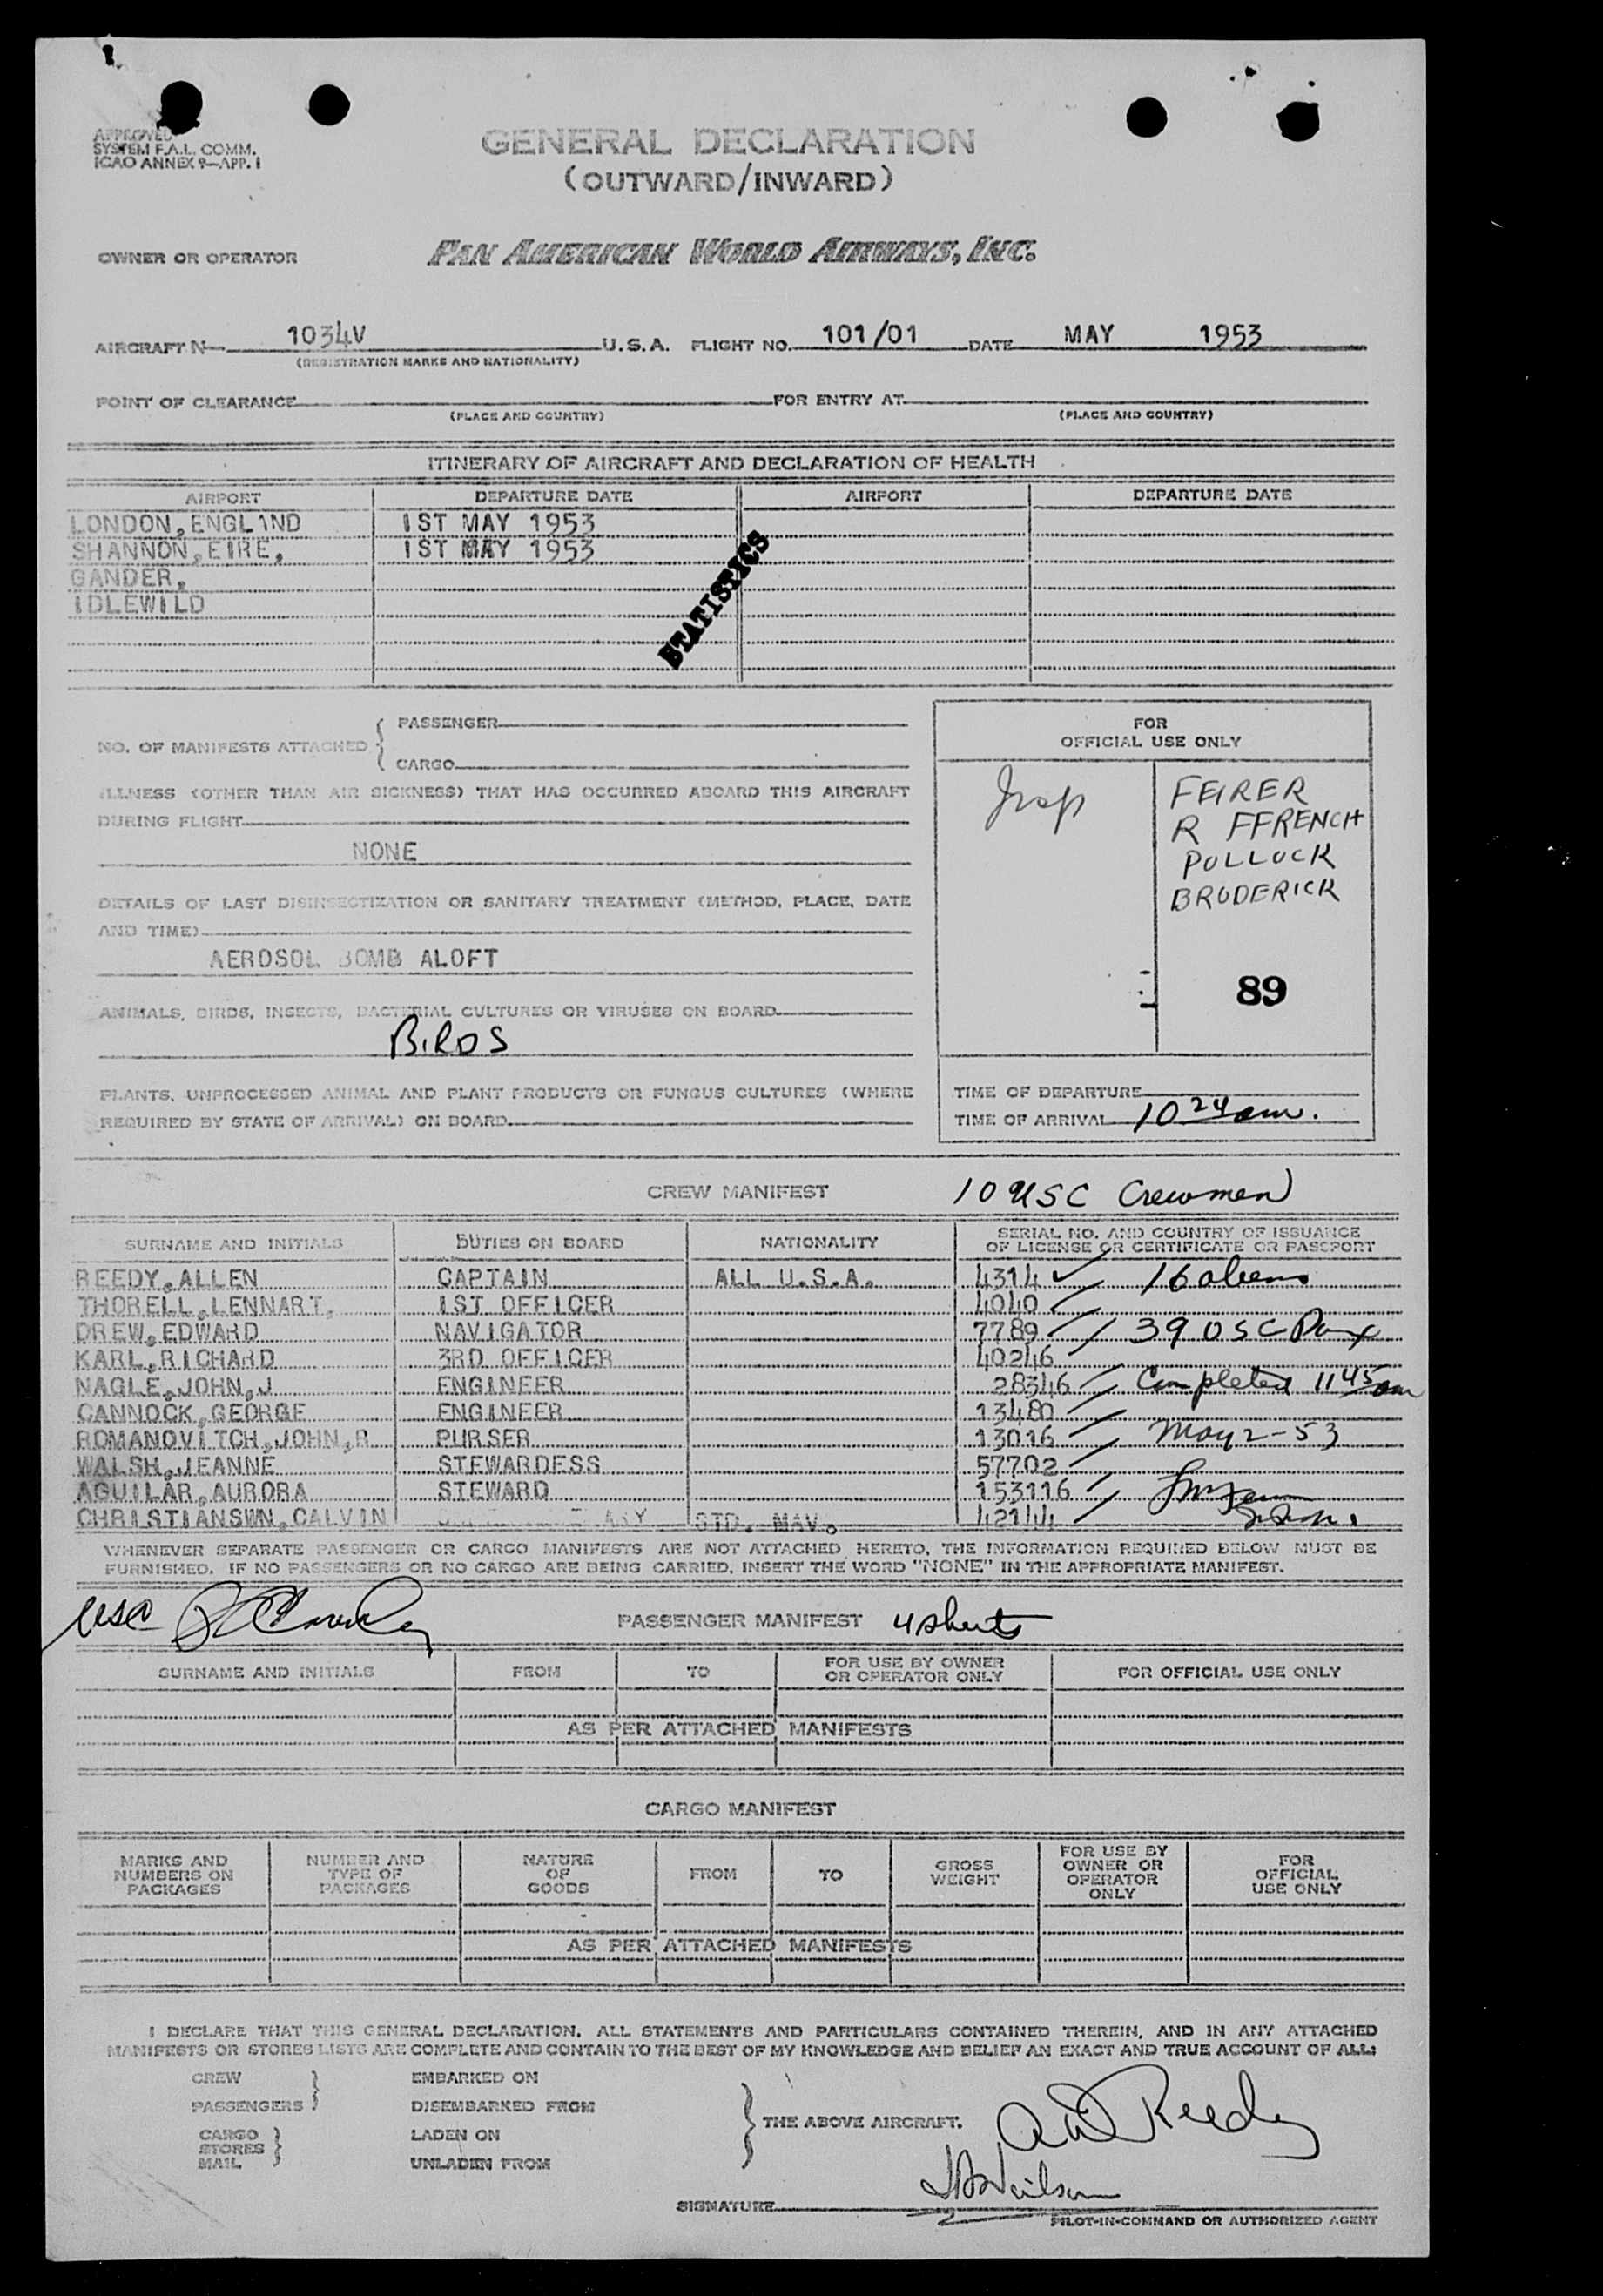 APPROVED
SYSTEM F.A.L. COMM.
ICAO ANNEX 9—APP. I
GENERAL DECLARATION
(OUTWARD/INWARD)
OWNER OR OPERATOR PAN AMERICAN WORLD AIRWAYS, INC.
AIRCRAFT N— 1034V U.S.A. FLIGHT NO. 101/01 DATE MAY 1953
(REGISTRATION MARKS AND NATIONALITY)
POINT OF CLEARANCE FOR ENTRY AT
(PLACE AND COUNTRY) (PLACE AND COUNTRY)
ITINERARY OF AIRCRAFT AND DECLARATION OF HEALTH
AIRPORT DEPARTURE DATE AIRPORT DEPARTURE DATE
LONDON, ENGLAND 1ST MAY 1953
SHANNON, EIRE, 1ST MAY 1953
GANDER,
IDLEWILD
STATISTICS
NO. OF MANIFESTS ATTACHED { PASSENGER
CARGO
ILLNESS (OTHER THAN AIR SICKNESS) THAT HAS OCCURRED ABOARD THIS AIRCRAFT
DURING FLIGHT
NONE
DETAILS OF LAST DISINSECTIZATION OR SANITARY TREATMENT (METHOD, PLACE, DATE
AND TIME)
AEROSOL BOMB ALOFT
ANIMALS, BIRDS, INSECTS, BACTERIAL CULTURES OR VIRUSES ON BOARD
BIRDS
PLANTS, UNPROCESSED ANIMAL AND PLANT PRODUCTS OR FUNGUS CULTURES (WHERE
REQUIRED BY STATE OF ARRIVAL) ON BOARD
FOR
OFFICIAL USE ONLY
Insp
FEIRER
R FFRENCH
POLLOCK
BRODERICK
89
TIME OF DEPARTURE
TIME OF ARRIVAL 10 24 am.
CREW MANIFEST 10 USC Crewmen
SURNAME AND INITIALS DUTIES ON BOARD NATIONALITY SERIAL NO. AND COUNTRY OF ISSUANCE
OF LICENSE OR CERTIFICATE OR PASSPORT
REEDY, ALLEN CAPTAIN ALL U.S.A. 4314 16 aliens
THORELL, LENNART, 1ST OFFICER 4040
DREW, EDWARD NAVIGATOR 7789 39 USC Pax
KARL, RICHARD 3RD OFFICER 40246
NAGLE, JOHN, J ENGINEER 28346 Completed 11 45 am
CANNOCK, GEORGE ENGINEER 13480
ROMANOVITCH, JOHN, R PURSER 13016 May 2-53
WALSH, JEANNE STEWARDESS 57702
AGUILAR, AURORA STEWARD 153116
CHRISTIANSWN, CALVIN STD. NAV. 42144
WHENEVER SEPARATE PASSENGER OR CARGO MANIFESTS ARE NOT ATTACHED HERETO, THE INFORMATION REQUIRED BELOW MUST BE
FURNISHED. IF NO PASSENGERS OR NO CARGO ARE BEING CARRIED, INSERT THE WORD "NONE" IN THE APPROPRIATE MANIFEST.
USC PASSENGER MANIFEST 4 sheets
SURNAME AND INITIALS FROM TO FOR USE BY OWNER
OR OPERATOR ONLY FOR OFFICIAL USE ONLY
AS PER ATTACHED MANIFESTS
CARGO MANIFEST
MARKS AND
NUMBERS ON
PACKAGES
NUMBER AND
TYPE OF
PACKAGES
NATURE
OF
GOODS
FROM
TO
GROSS
WEIGHT
FOR USE BY
OWNER OR
OPERATOR
ONLY
FOR
OFFICIAL
USE ONLY
AS PER ATTACHED MANIFESTS
I DECLARE THAT THIS GENERAL DECLARATION, ALL STATEMENTS AND PARTICULARS CONTAINED THEREIN, AND IN ANY ATTACHED
MANIFESTS OR STORES LISTS ARE COMPLETE AND CONTAIN TO THE BEST OF MY KNOWLEDGE AND BELIEF AN EXACT AND TRUE ACCOUNT OF ALL:
CREW EMBARKED ON
PASSENGERS DISEMBARKED FROM
CARGO LADEN ON
STORES
MAIL UNLADEN FROM
THE ABOVE AIRCRAFT.
SIGNATURE
PILOT-IN-COMMAND OR AUTHORIZED AGENT